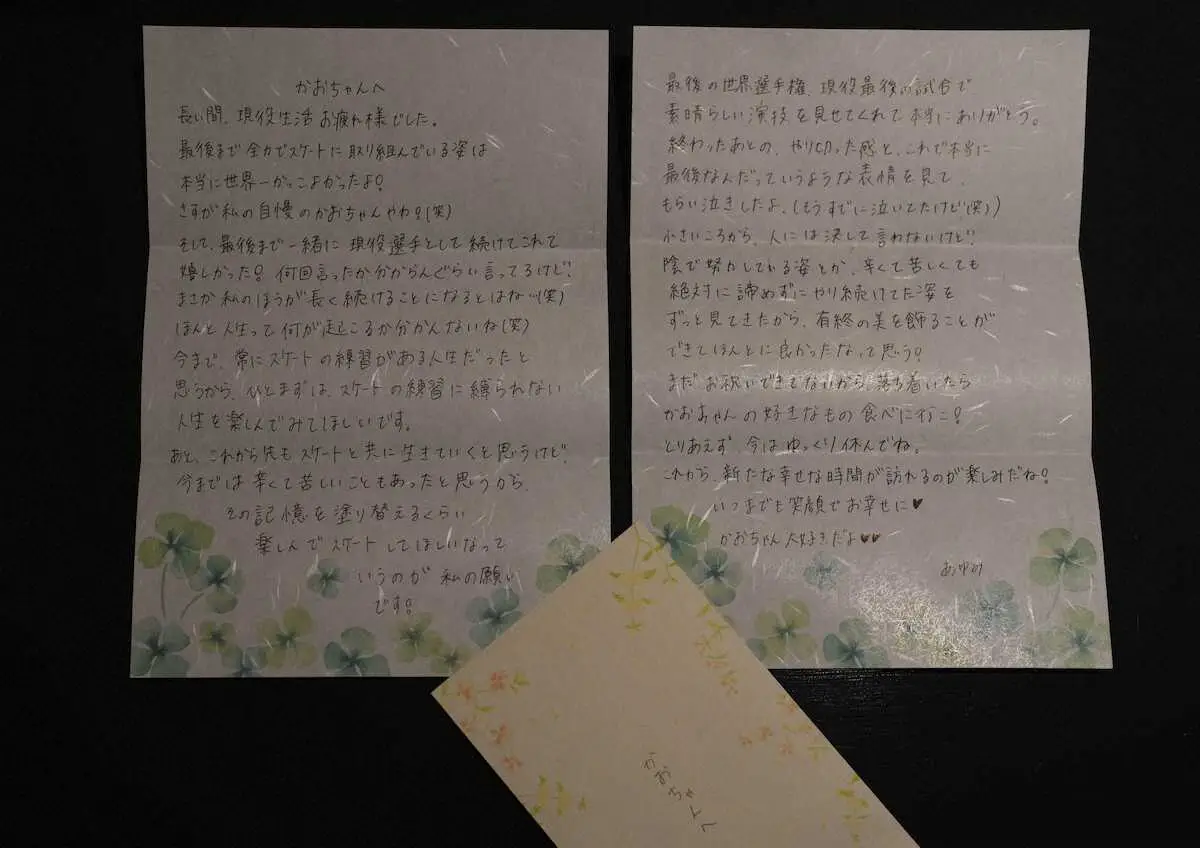 かおちゃんへ
長い間、現役生活お疲れ様でした。
最後まで全力でスケートに取り組んでいる姿は
本当に世界一かっこよかったよ!
さすが私の自慢のかおちゃんやわ!(笑)
そして、最後まで一緒に現役選手として続けてこれて
嬉しかった!何回言ったか分からんぐらい言ってるけど、
まさか私のほうが長く続けることになるとはね…(笑)
ほんと人生って何が起こるか分かんないね(笑)
今まで、常にスケートの練習がある人生だったと
思うから、ひとまずは、スケートの練習に縛られない
人生を楽しんでみてほしいです。
あと、これから先もスケートと共に生きていくと思うけど、
今までは辛くて苦しいこともあったと思うから、
その記憶を塗り替えるくらい
楽しんでスケートしてほしいなって
いうのが私の願い
です!
最後の世界選手権、現役最後の試合で
素晴らしい演技を見せてくれて本当にありがとう。
終わったあとの、やり切った感と、これで本当に
最後なんだっていうような表情を見て、
もらい泣きしたよ、(もうすでに泣いてたけど(笑))
小さいころから、人には決して言わないけど、
陰で努力している姿とか、辛くて苦しくても
絶対に諦めずにやり続けてた姿を
ずっと見てきたから、有終の美を飾ることが
できてほんとに良かったなって思う!
まだお祝いできてないから、落ち着いたら
かおちゃんの好きなもの食べに行こ!
とりあえず、今はゆっくり休んでね。
これから、新たな幸せな時間が訪れるのが楽しみだね!
いつまでも笑顔でお幸せに♥
かおちゃん大好きだよ♥♥
あゆみ
かおちゃんへ